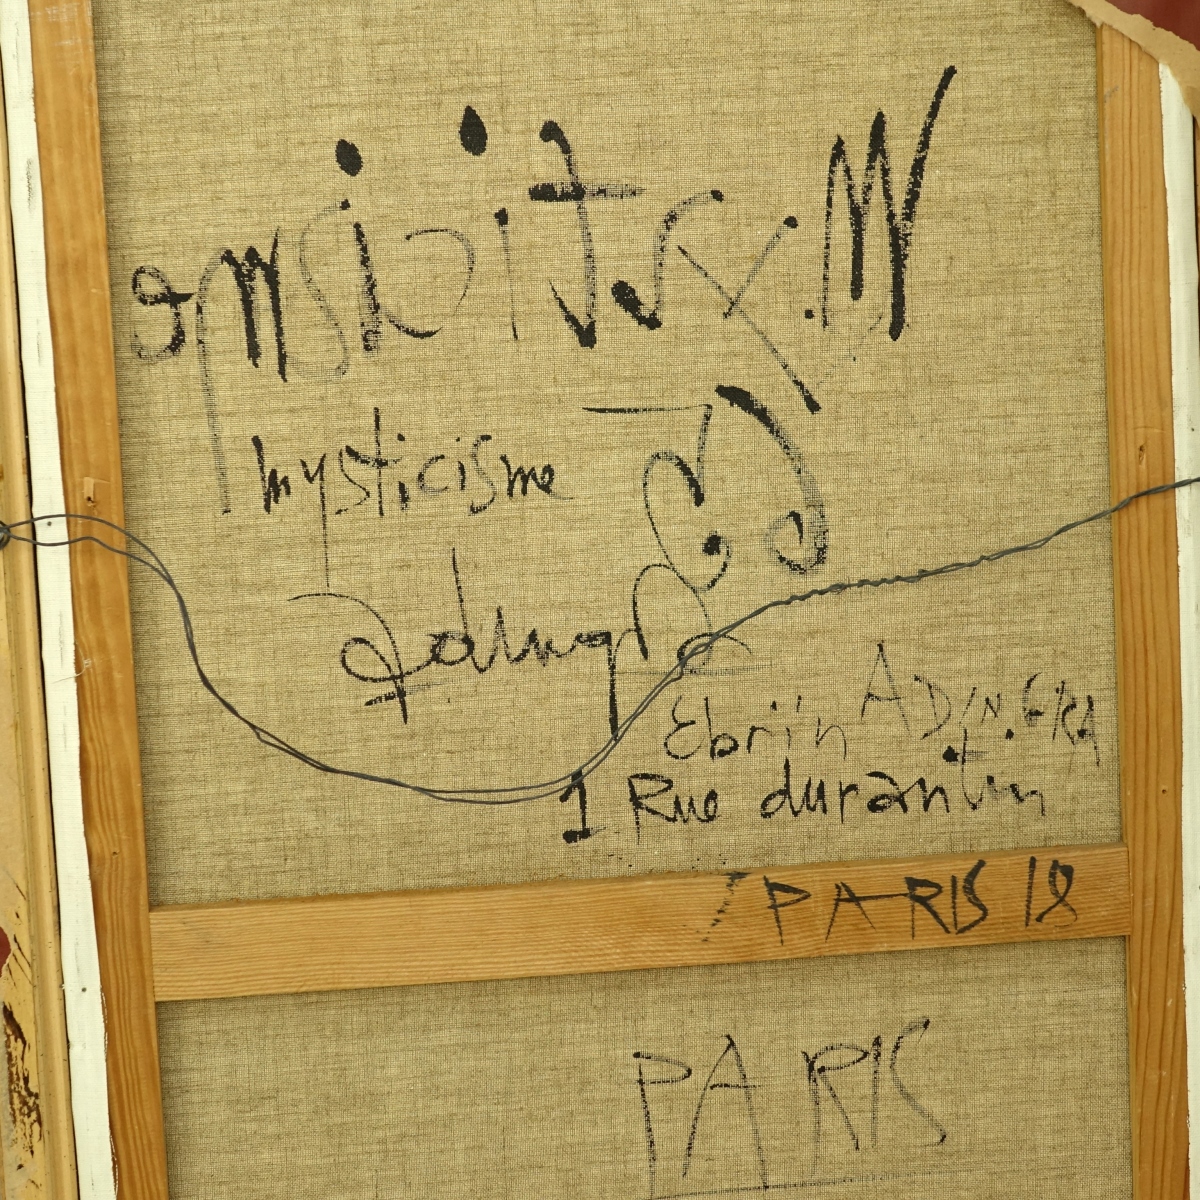 Mysticisme
mysticisme
Ebri'n ADIN.GRA
1 Rue durantin
PARIS 18
PARIS